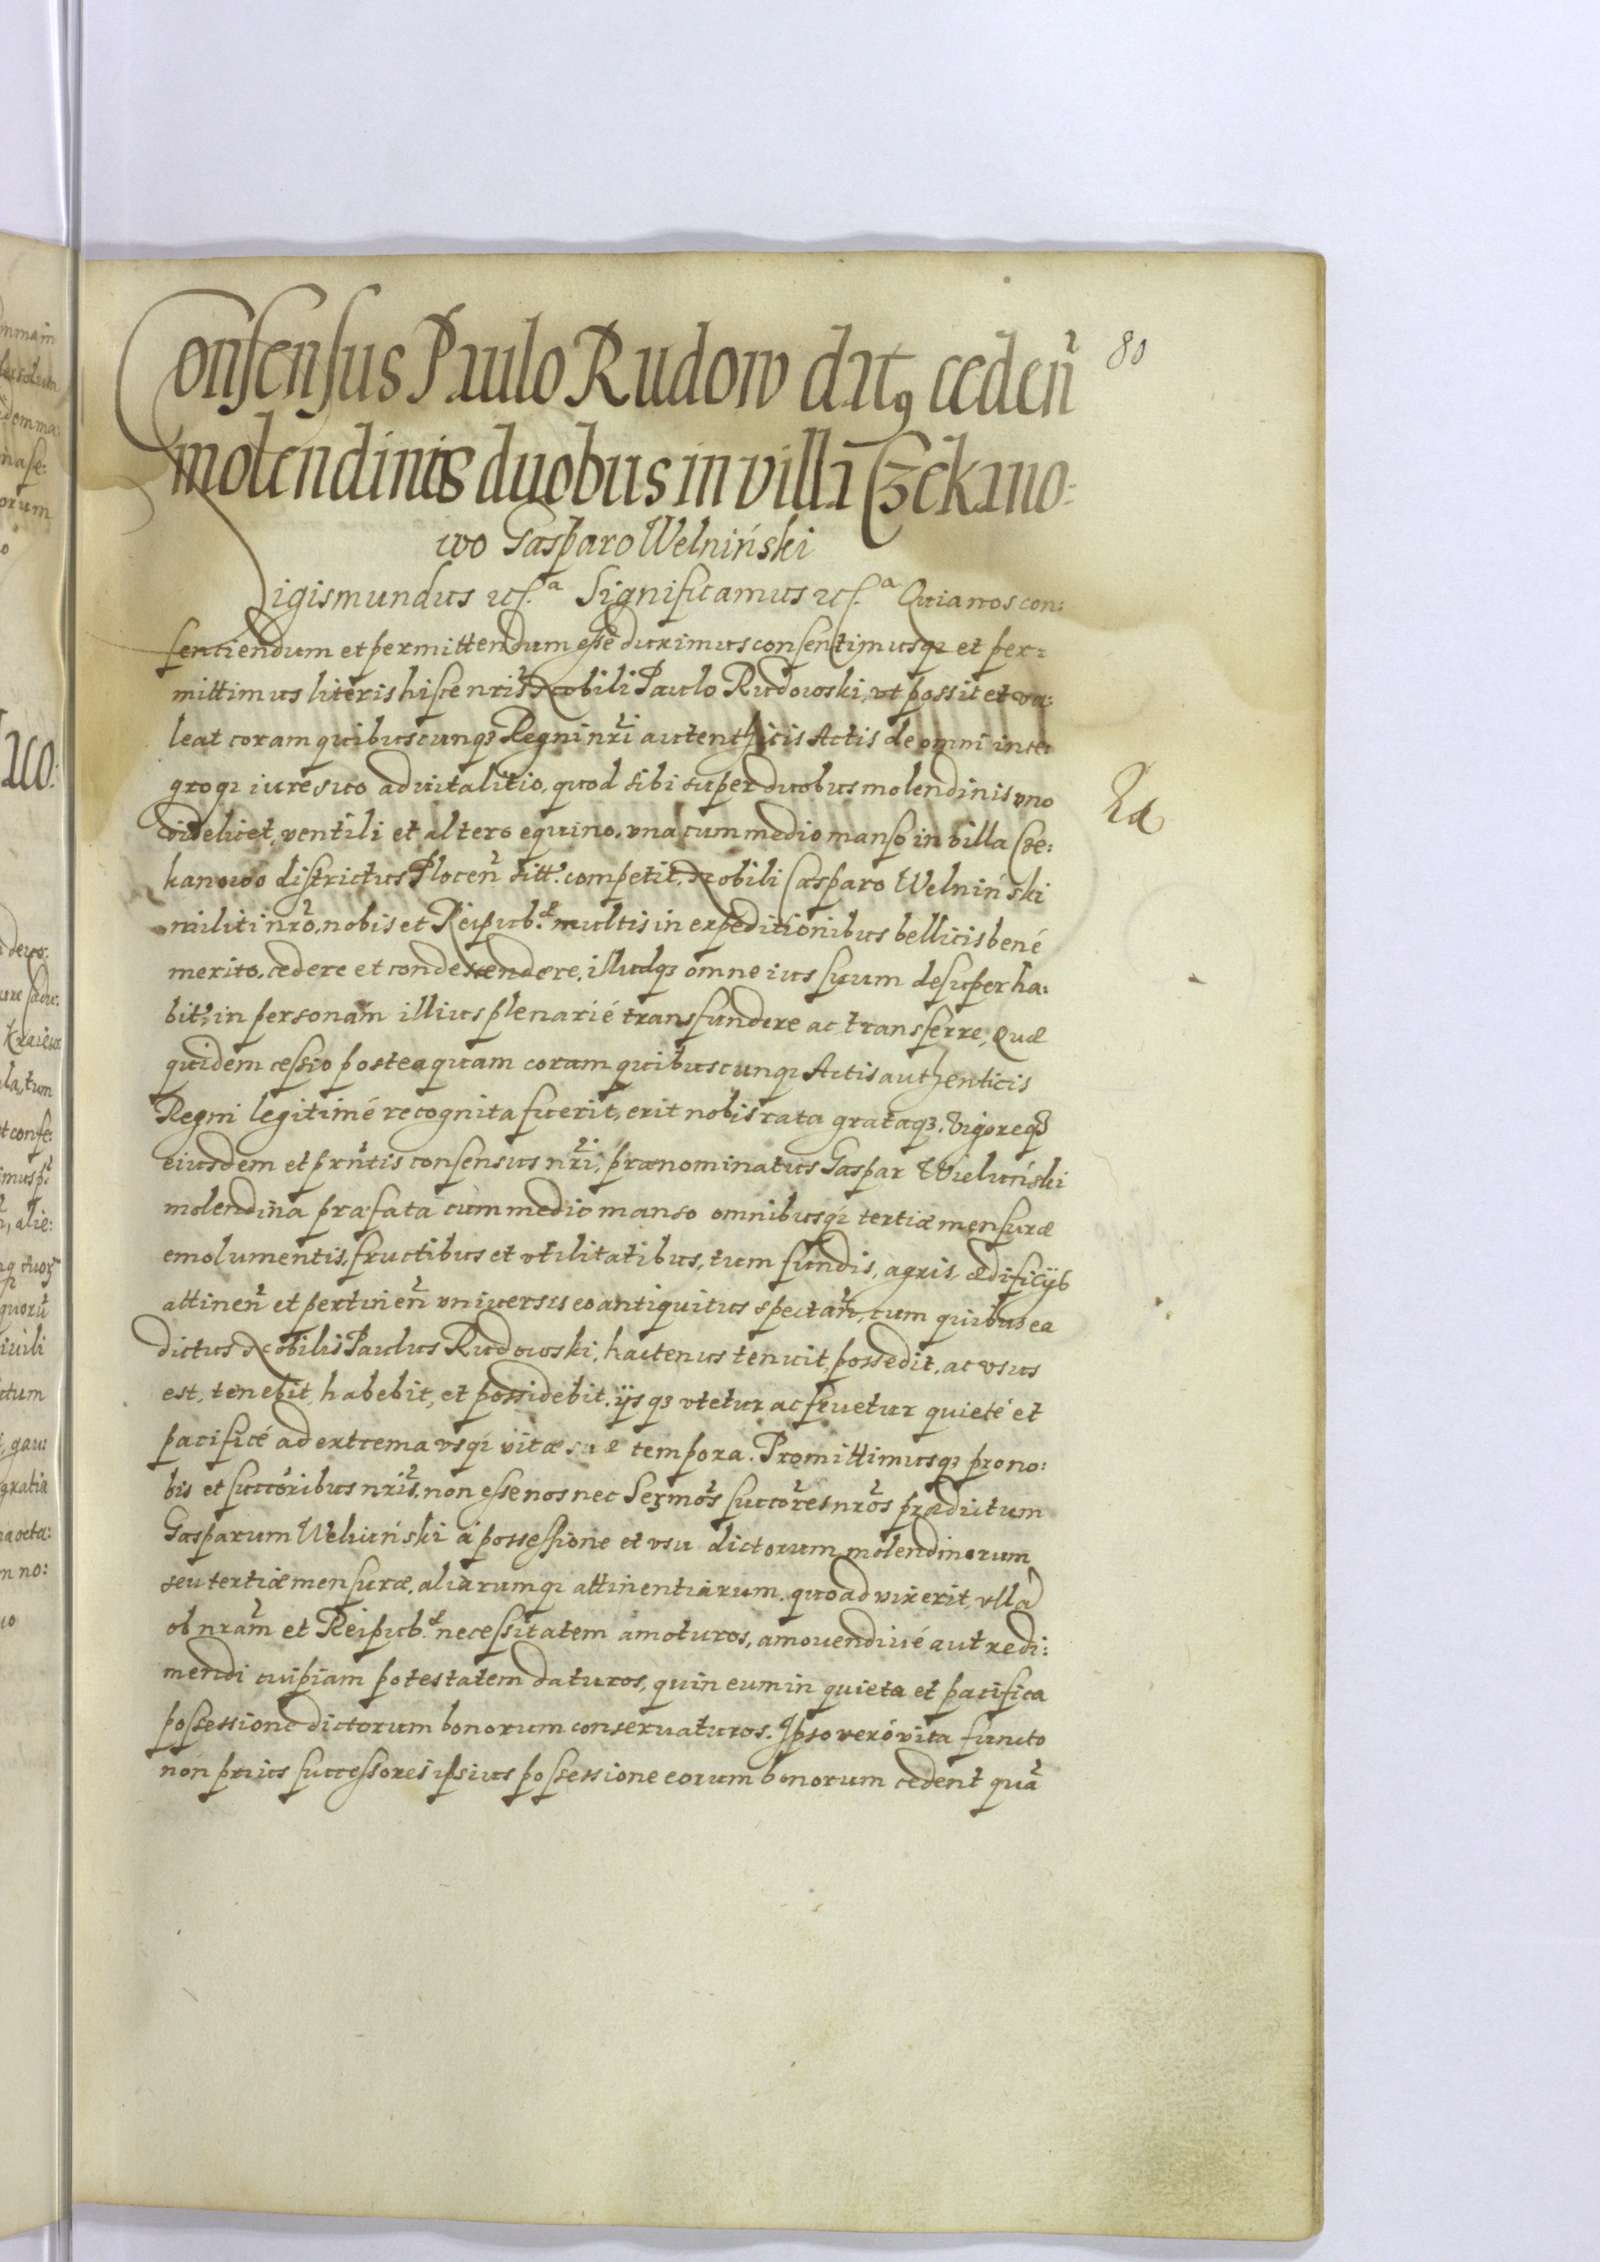 80
Consensus Paulo Rudow datq cedeñ
molendinis duobus in villa Czekano=
wo Gasparo Welniński
Sigismundus etc.ª Significamus etc.ª Quia nos con:
sentiendum et permittendum esse duximus consentimusq et per=
mittimus literis hisce nris Nobili Paulo Rudowski, ut possit et va:
leat coram quibuscunq Regni nri autenthicis Actis de omni inte:
groq iure suo advitalitio, quod sibi super duobus molendinis uno
videlicet, ventili et altero equino. una cum medio manso in villa Cze:
kanowo districtus Ploceñ sitt. competit, Nobili Casparo Welniński
militi nro, nobis et Reipub.æ multis in expeditionibus bellicis bené
merito, cedere et condescendere, illudq omne ius suum desuper ha:
bit, in personam illius plenarié transfundere ac transferre, Quæ
quidem cessio posteaquam coram quibuscunq Actis authenticis
Regni legitimé recognita fuerit, erit nobis rata grataq, Vigoreq
eiusdem et prntis consensus nri, prænominatus Gaspar Wieluński
molendina præfata cum medio manso omnibusq tertiæ mensuræ
emolumentis, fructibus et utilitatibus, tum fundis, agris, ædificijs
attineñ et pertineñ universis eo antiquitus spectañ, cum quibus ea
dictus Nobilis Paulus Rudowski, hactenus tenuit, possedit, ac usus
est, tenebit, habebit, et possidebit, ijsq utetur ac fruetur quieté et
pacificé ad extrema usq vitæ suæ tempora. Promittimusq pro no:
bis et succoribus nris, non esse nos nec Sermos succores nros prædictum
Gasparum Weluński á possessione et usu dictorum molendinorum
seu tertiæ mensuræ, aliarumq attinentiarum, quoad vixerit, ulla
ob nram et Reipub.æ necessitatem amoturos, amovendivé aut redi:
mendi cuipiam potestatem daturos, quin eum in quieta et pacifica
possessione dictorum bonorum conservaturos. Ipso veró vita functo
non prius successores ipsius possessione eorum bonorum cedent quã